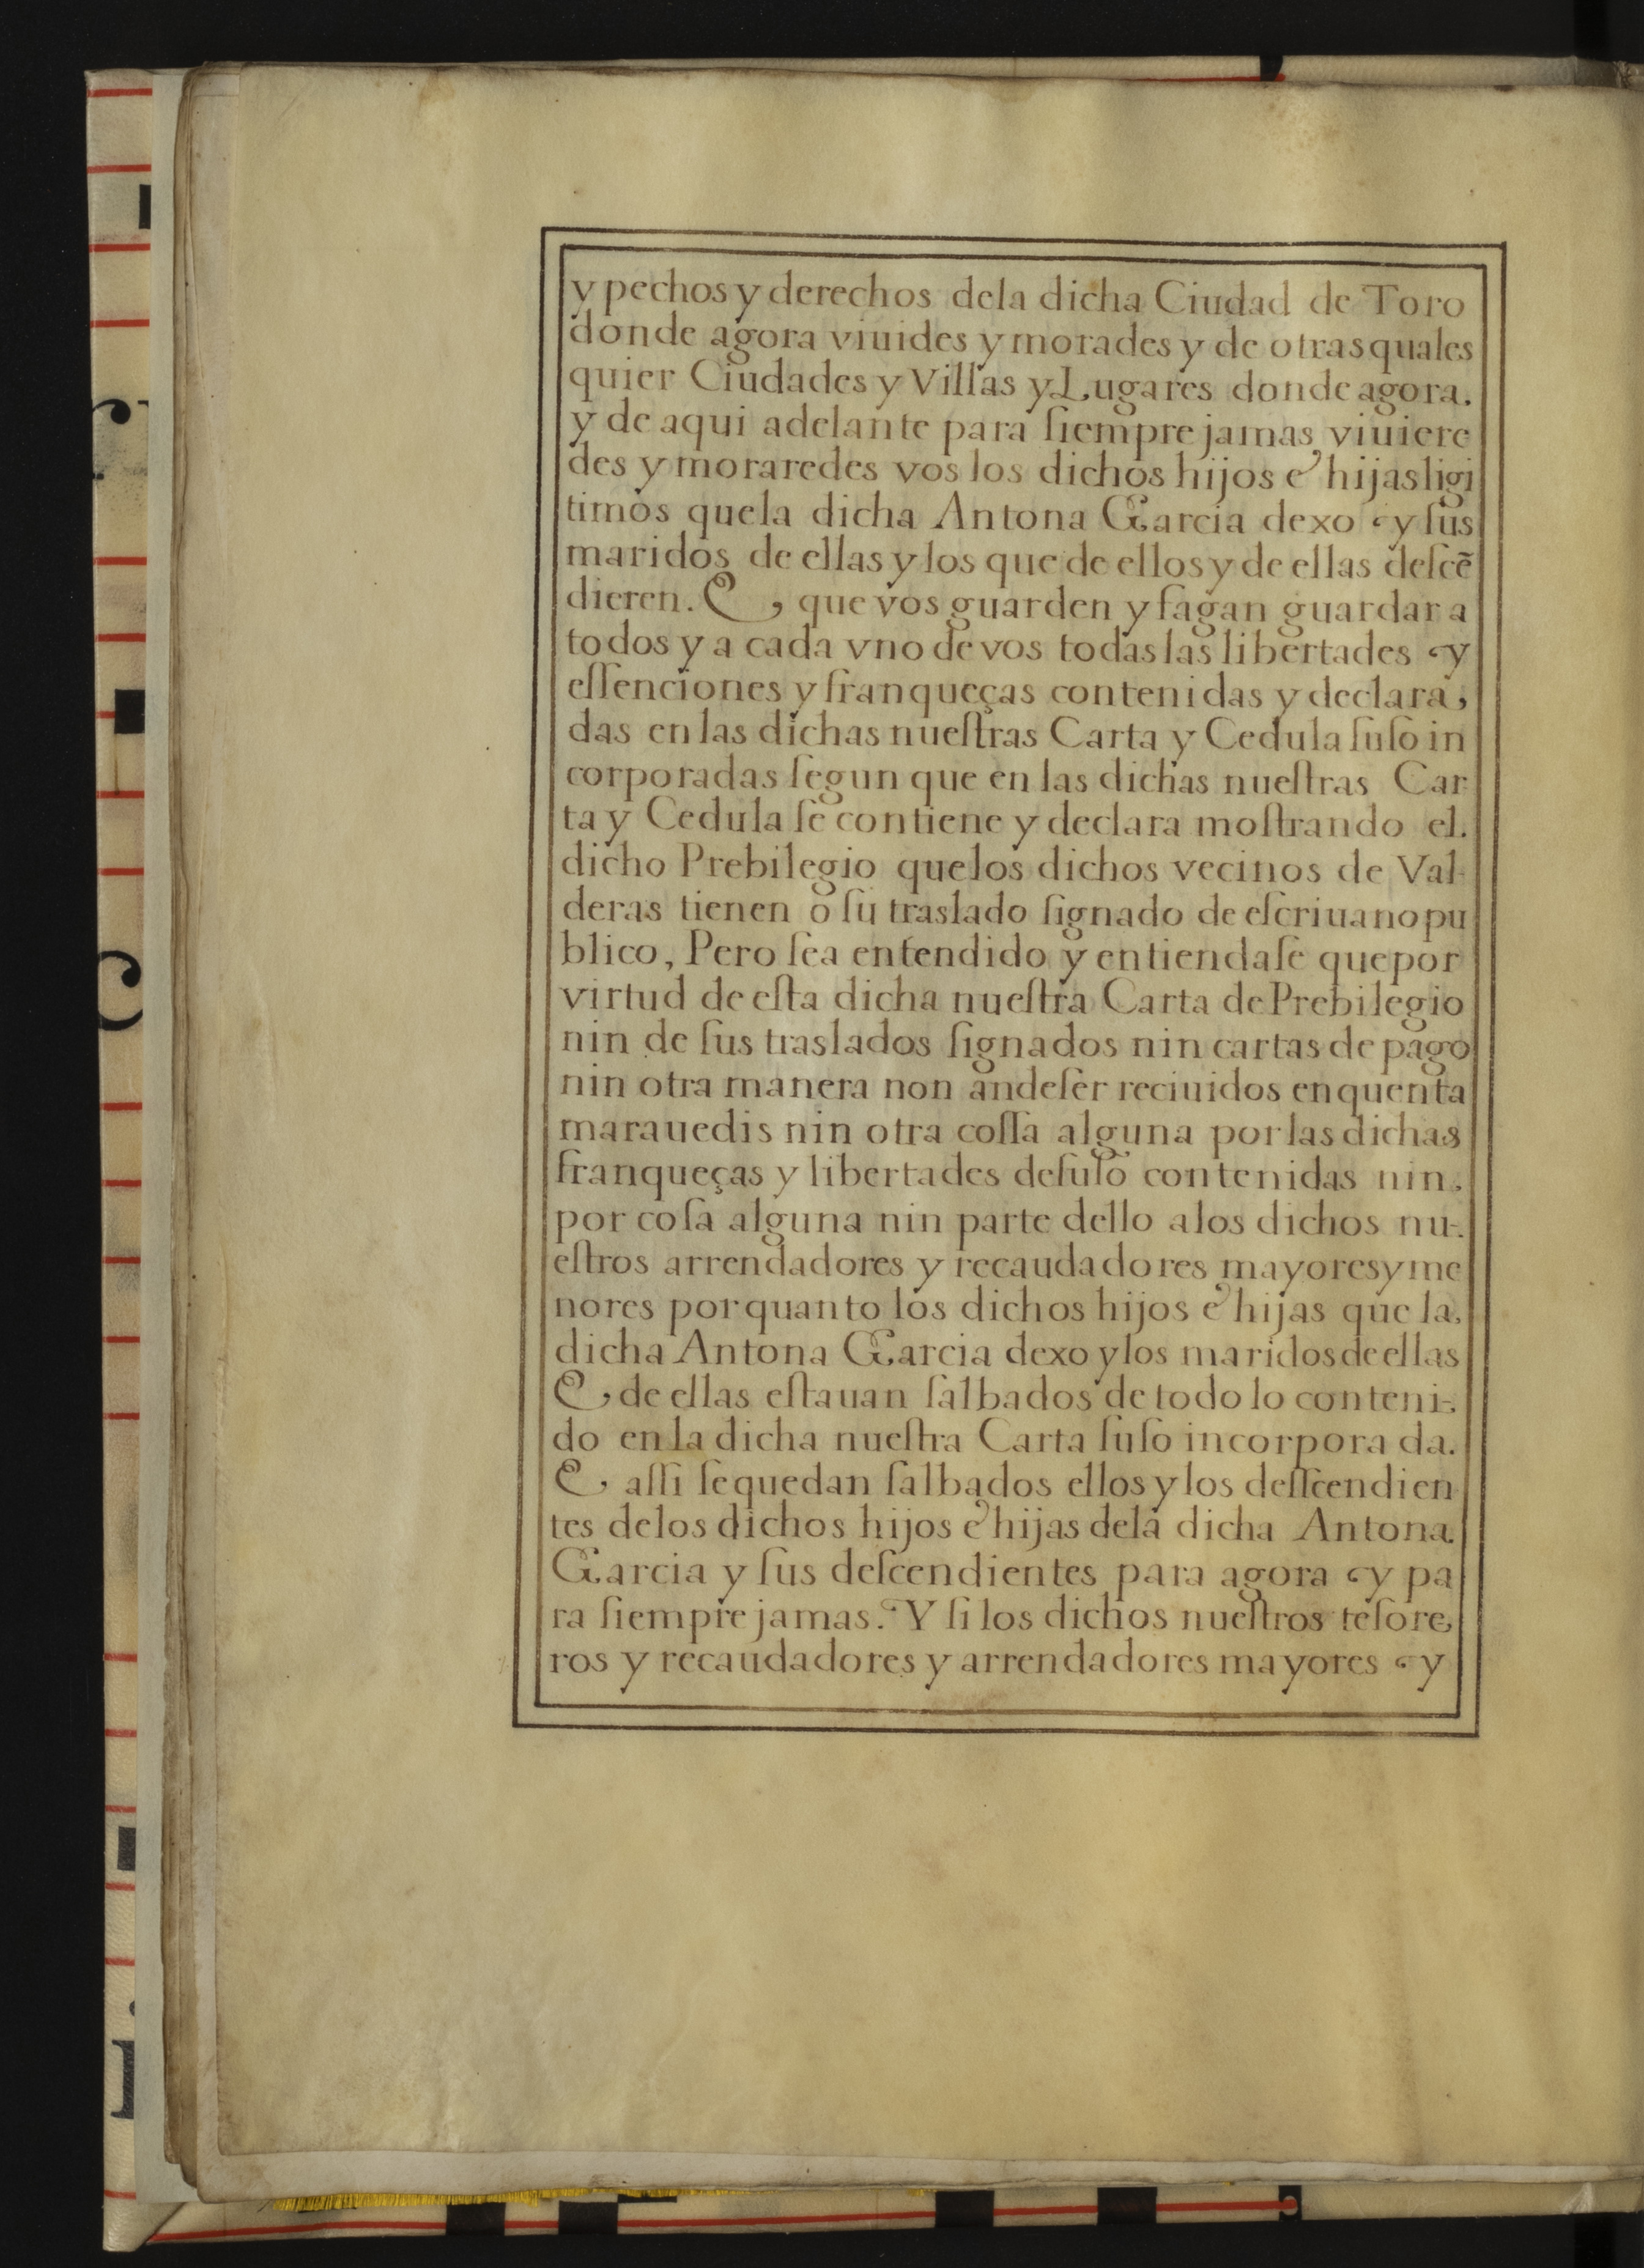 y pechos y derechos dela dicha Ciudad de Toro
donde agora viuides y morades y de otras quales
quier Ciudades y Villas y Lugares donde agora.
y de aqui adelante para ſiempre jamas viuiere
des y moraredes vos los dichos hijos e hijas ligi
timos quela dicha Antona Garcia dexo y ſus
maridos de ellas y los que de ellos y de ellas deſcẽ
dieren. E, que vos guarden y fagan guardar a
todos y a cada vno de vos todas las libertades y
eſſenciones y franqueças contenidas y declara,
das en las dichas nueſtras Carta y Cedula ſuſo in
corporadas ſegun que en las dichas nueſtras Car
ta y Cedula ſe contiene y declara moſtrando el.
dicho Prebilegio quelos dichos vecinos de Val-
deras tienen o ſu traslado ſignado de eſcriuano pu
blico, Pero ſea entendido y entiendaſe que por
virtud de eſta dicha nueſtra Carta de Prebilegio
nin de ſus traslados ſignados nin cartas de pago
nin otra manera non andeſer reciuidos en quenta
marauedis nin otra coſſa alguna por las dichas
franqueças y libertades deſuſo contenidas nin.
por coſa alguna nin parte dello alos dichos nu-.
eſtros arrendadores y recaudadores mayores y me
nores por quanto los dichos hijos e hijas que la,
dicha Antona Garcia dexo y los maridos de ellas
E, de ellas eſtauan ſalbados de todo lo conteni-.
do en la dicha nueſtra Carta ſuſo incorpora da.
E, aſſi ſe quedan ſalbados ellos y los deſſcendien
tes delos dichos hijos e hijas dela dicha Antona.
Garcia y ſus deſcendientes para agora y pa
ra ſiempre jamas. Y ſi los dichos nueſtros teſore,
ros y recaudadores y arrendadores mayores y